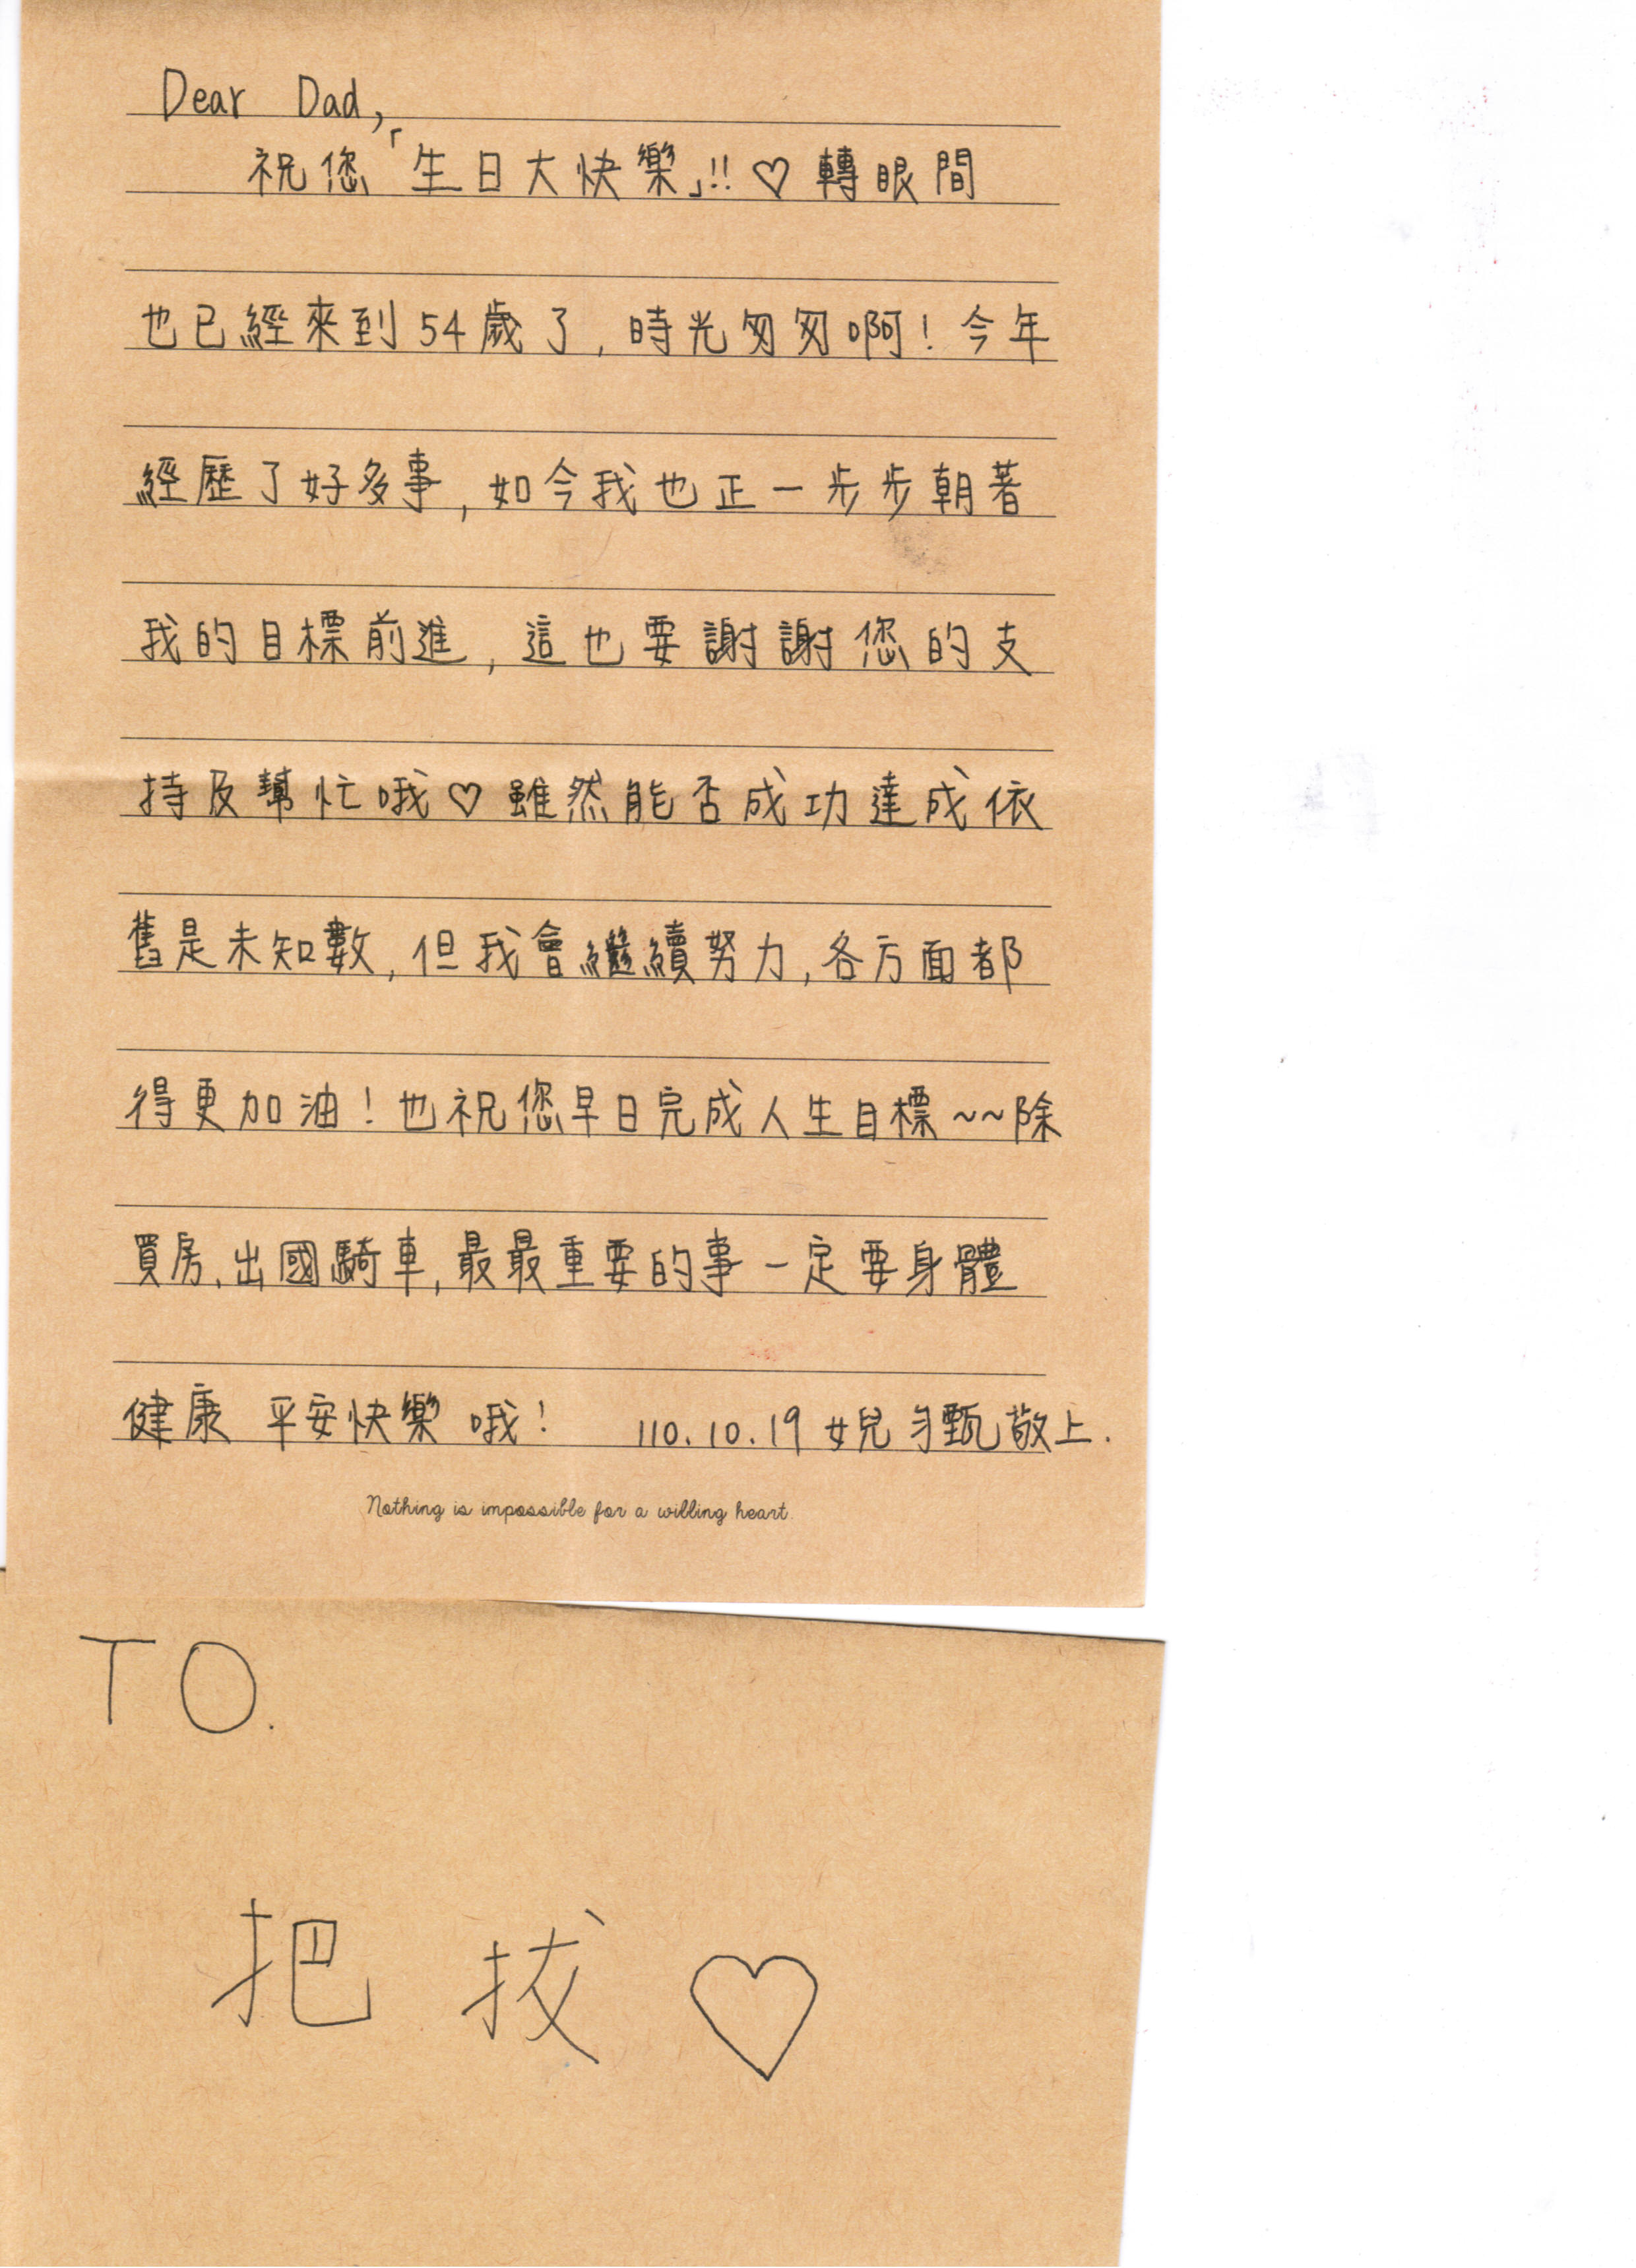 Dear Dad,
祝您「生日大快樂」!! ♡ 轉眼間
也已經來到54歲了, 時光匆匆啊! 今年
經歷了好多事, 如今我也正一步步朝著
我的目標前進, 這也要謝謝您的支
持及幫忙哦♡ 雖然能否成功達成依
舊是未知數, 但我會繼續努力, 各方面都
得更加油! 也祝您早日完成人生目標~~除
買房、出國騎車, 最最重要的事一定要身體
健康 平安快樂 哦! 110.10.19 女兒 勻甄 敬上.
Nothing is impossible for a willing heart
TO.
把拔♡